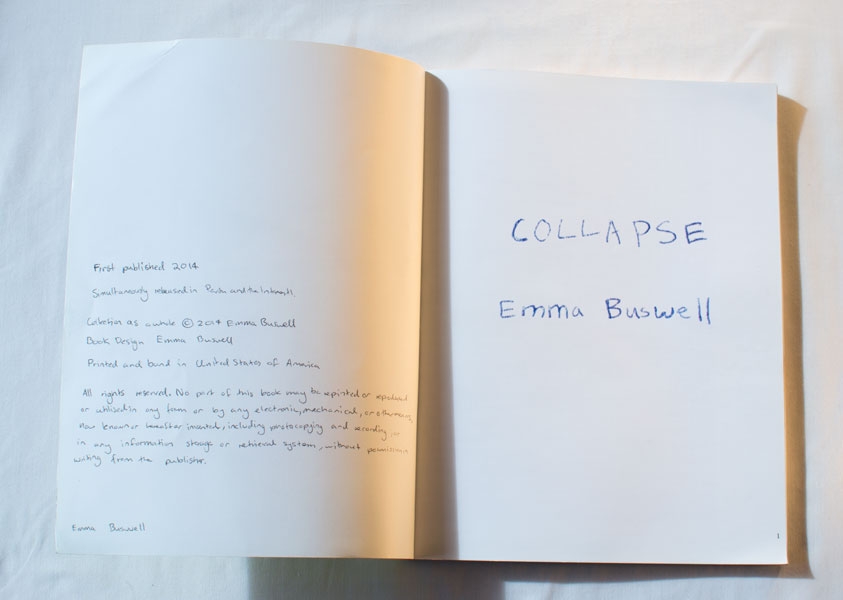 First published 2014
Simultaneously released in and the Internet.
Collection as a whole © 2014 Emma Buswell
Book Design Emma Buswell
Printed and bound in United States of America
All rights reserved. No part of this book may be reprinted or reproduced
or utilised in any form or by any electronic, mechanical, or other means,
now known or hereafter invented, including photocopying and recording, or
in any information storage or retrieval system, without permission
writing from the publisher.
Emma Buswell
COLLAPSE
Emma Buswell
1